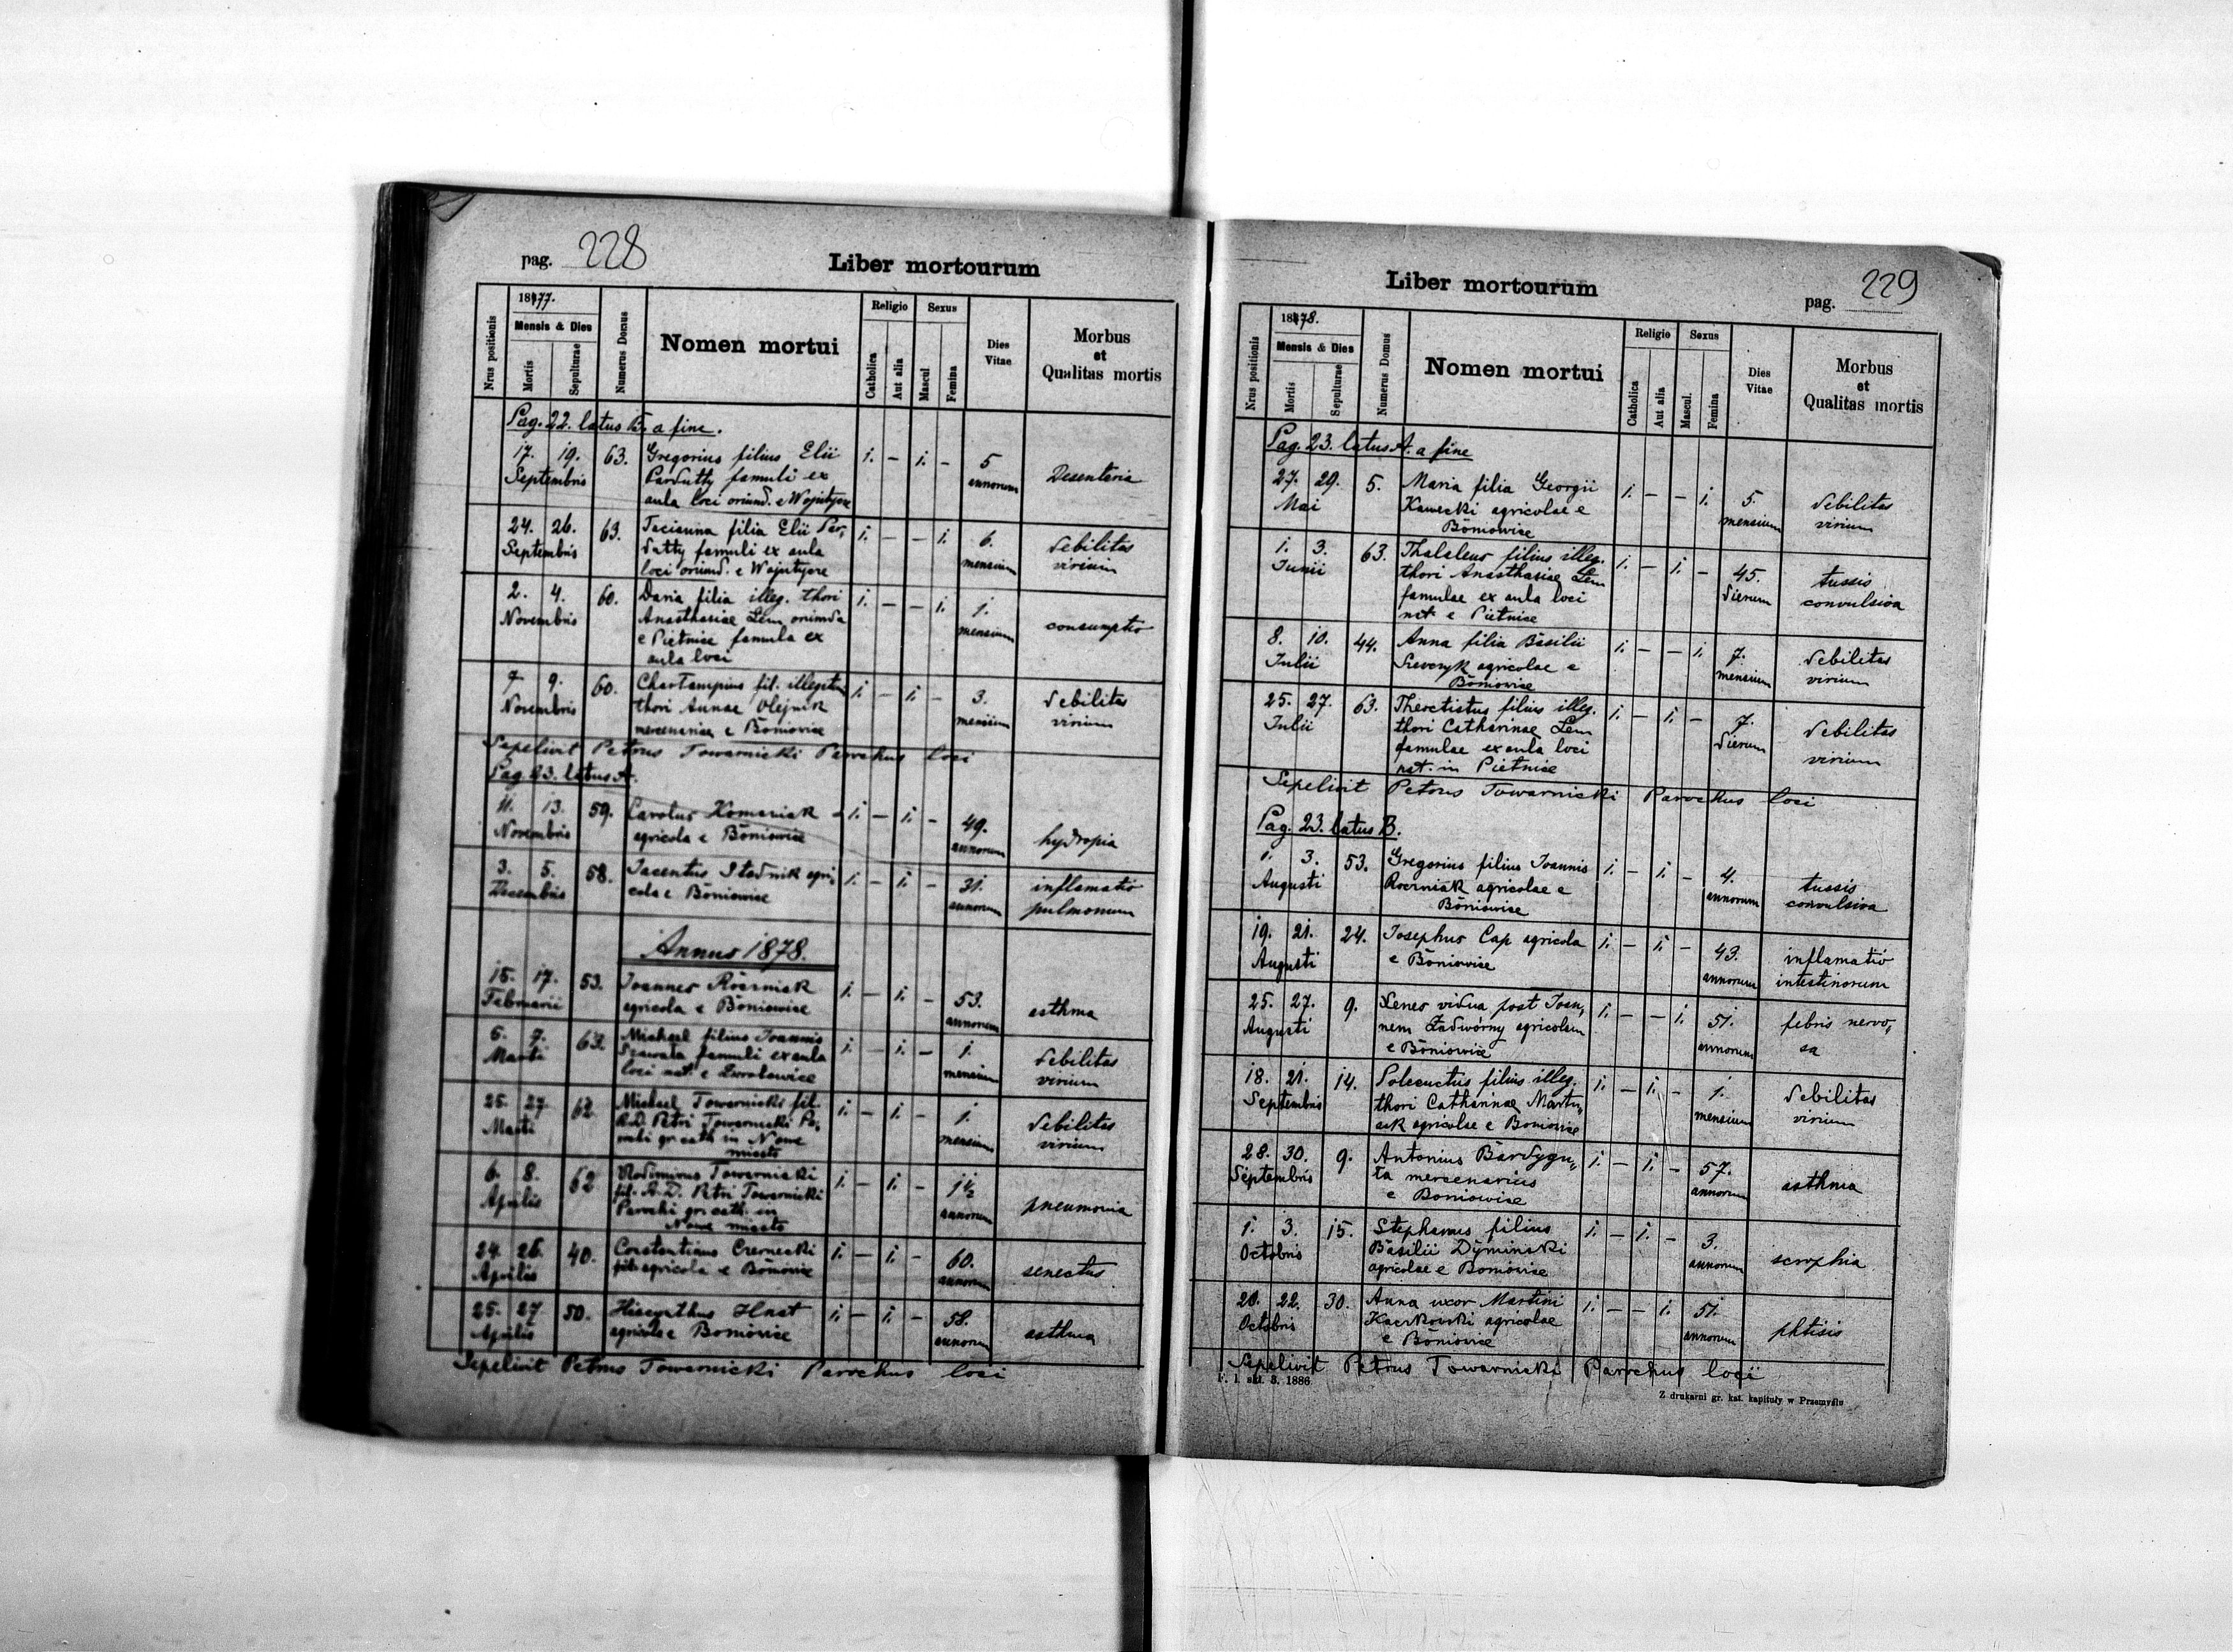 pag. 228
Liber mortourum
Nrus positionis
1877.
Mensis & Dies
Mortis
Sepulturae
Numerus Domus
Nomen mortui
Religio
Catholica
Aut alia
Sexus
Mascul
Femina
Dies Vitae
Morbus
et
Qualitas mortis
Pag. 22. latus B. a fine.
17. 19. 63. Gregorius filius Elii i. — i. — 5
Septembris Pardutty famuli ex annorum Desenteria
aula loci oriund. e Wojutycze
24. 26. 63. Tacianna filia Elii Par„ i. — — i. 6. debilitas
Septembris dutty famuli ex aula mensium virium
loci oriund. e Wojutycze
2. 4. 60. Daria filia illeg. thori i. — — i. 1.
Novembris Anasthasiae Lem oriunda mensium consumptio
e Pietnice famula ex
aula loci
7. 9. 60. fil. illegitim i. — i. — 3. debilitas
Novembris thori Annae Olejnik mensium virium
mercenariae e Boniowice
Sepelivit Petrus Towarnicki Parochus loci
Pag. 23. latus A.
11. 13. 59. Carolus Komaniak i. — i. — 49.
Novembris agricola e Boniowice annorum hydropia
3. 5. 58. Jacentus Stadnik agri„ i. — i. — 31. inflamatio
Decembris cola e Boniowice annorum pulmonum
Annus 1878.
15. 17. 53. Joannes Roczniak i. — i. — 53.
Februarii agricola e Boniowice annorum asthma
5. 7. 63. Michael filius Joannis i. — i. — 1. debilitas
Martii famuli ex aula mensium virium
loci nat. e
25. 27. 62. Michael Towarnicki fil. i. — i. — 1. debilitas
Martii A.D. Petri Towarnicki Pa„ mensium virium
rochi gr cath in Nowe
miasto
6. 8. 62. Wlodimirus Towarnicki i. — i. — 1½
Aprilis fil. A.D. Petri Towarnicki annorum pneumonia
Parochi gr cath. in
Nowe miasto
24. 26. 40. Constantinus Czernecki i. — i. — 60.
Aprilis agricola e Boniowice annorum senectus
25. 27. 50. Hiacynthus Hnat i. — i. — 58.
Aprilis agricola e Boniowice annorum asthma
Sepelivit Petrus Towarnicki Parochus loci
Liber mortourum
pag. 229
Nrus positionis
1878.
Mensis & Dies
Mortis
Sepulturae
Numerus Domus
Nomen mortui
Religio
Catholica
Aut alia
Sexus
Mascul.
Femina
Dies Vitae
Morbus
et
Qualitas mortis
Pag. 23. latus A. a fine
27. 29. 5. Maria filia Georgii i. — — i. 5. debilitas
Mai Kawecki agricolae e mensium virium
Boniowice
1. 3. 63. Thalaleus filius illeg. i. — i. — 45. tussis
Junii thori Anasthasiae Lem dierum convulsiva
famulae ex aula loci
nat e Pietnice
8. 10. 44. Anna filia Basilii i. — — i. 7. debilitas
Julii Szewczyk agricolae e mensium virium
Boniowice
25. 27. 63. Theoctistus filius illeg. i. — i. — 7. debilitas
Julii thori Catharinae Lem dierum virium
famulae ex aula loci
nat. in Pietnice
Sepelivit Petrus Towarnicki Parochus loci
Pag. 23. latus B.
1. 3. 53. Gregorius filius Joannis i. — i. — 4. tussis
Augusti Roczniak agricolae e annorum convulsiva
Boniowice
19. 21. 24. Josephus Cap agricola i. — i. — 43. inflamatio
Augusti e Boniowice annorum intestinorum
25. 27. 9. Xenes vidua post Joan„ i. — — i. 51. febris nervo„
Augusti nem Zadwórny agricolam annorum sa
e Boniowice
18. 21. 14. Poleuctus filius illeg. i. — i. — 1. debilitas
Septembris thori Catharinae Martin„ mensium virium
ak agricolae e Boniowice
28. 30. 9. Antonius Bardygu„ i. — i. — 57.
Septembris ta mercenarius annorum asthma
e Boniowice
1. 3. 15. Stephanus filius i. — i. — 3.
Octobris Basilii Dyminski annorum scrophia
agricolae e Boniowice
20. 22. 30. Anna uxor Martini i. — — i. 51.
Octobris Kaczkowski agricolae annorum phtisis
e Boniowice
Sepelivit Petrus Towarnicki Parochus loci
F. 1. skt. 3. 1886.
Z drukarni gr. kat. kapituły w Przemyślu